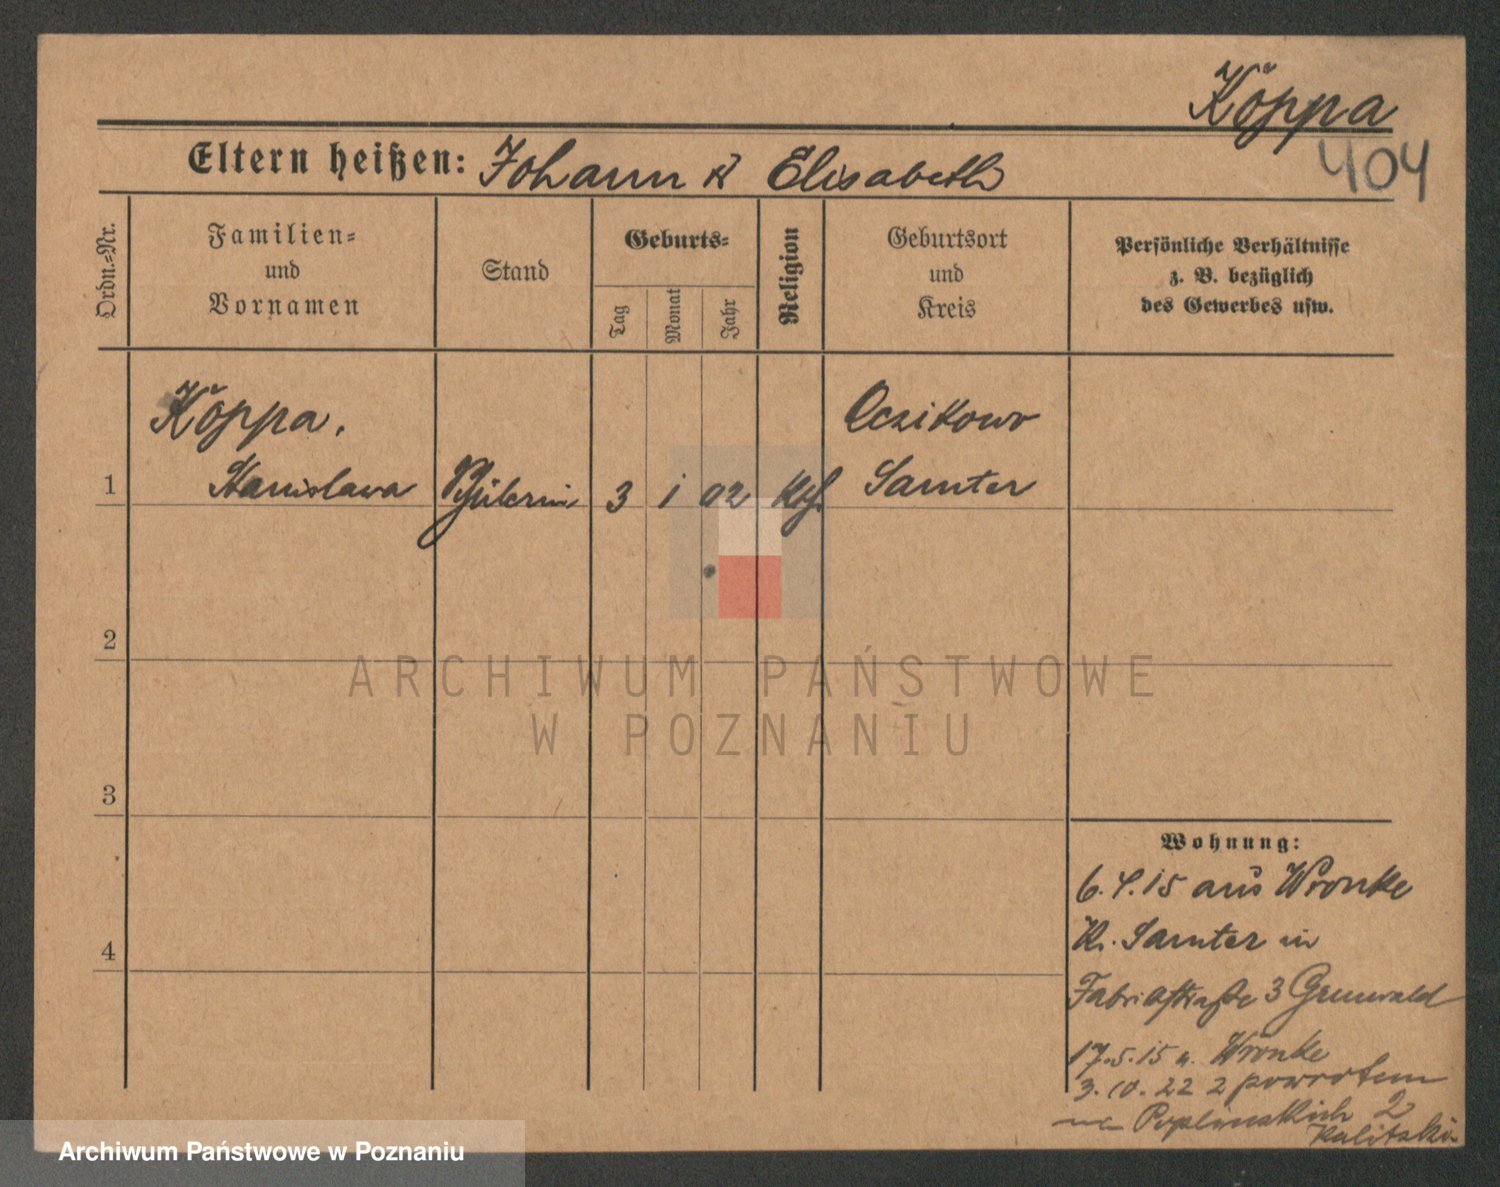 Köppa
404
Eltern heißen: Johann & Elisabeth
Ordn.=Nr.
Familien=
und
Vornamen
Stand
Geburts=
Tag
Monat
Jahr
Religion
Geburtsort
und
Kreis
Persönliche Verhältnisse
z. B. bezüglich
des Gewerbes usw.
Köppa.
Oczikowo
1 Stanislawa Schülerin 3 1 02 Kth. Samter
2
ARCHIWUM PAŃSTWOWE
W POZNANIU
3
Wohnung:
6.4.15 aus Wronke
Kr. Samter in
4
Fabrikstraße 3 Grunwald
17.5.15 n. Wronke
3.10.22 z powrotem
na Poplinskich 2
Kalitzki
Archiwum Państwowe w Poznaniu